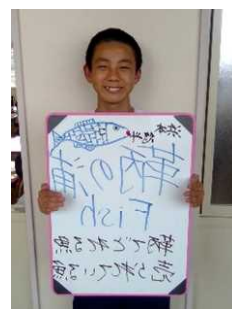 鞆の浦
Fish
鞆でとれる魚
売られている魚